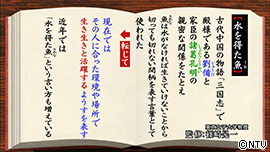 「水を得た魚」
古代中国の物語「三国志」で
殿様である劉備と
家臣の諸葛孔明の
親密な関係をたとえ
魚は水がなければ生きていけないことから
切っても切れない間柄を表す言葉として
使われた
転じて
現在では
その人に合った環境や場所で
生き生きと活躍するようすを表す
近年では
「水を得た魚」という言い方も増えている
©NTV